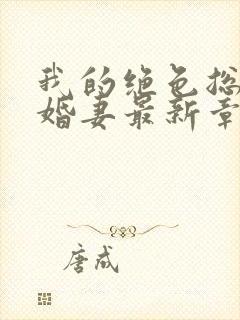 我的绝色总
婚妻最新章
唐成